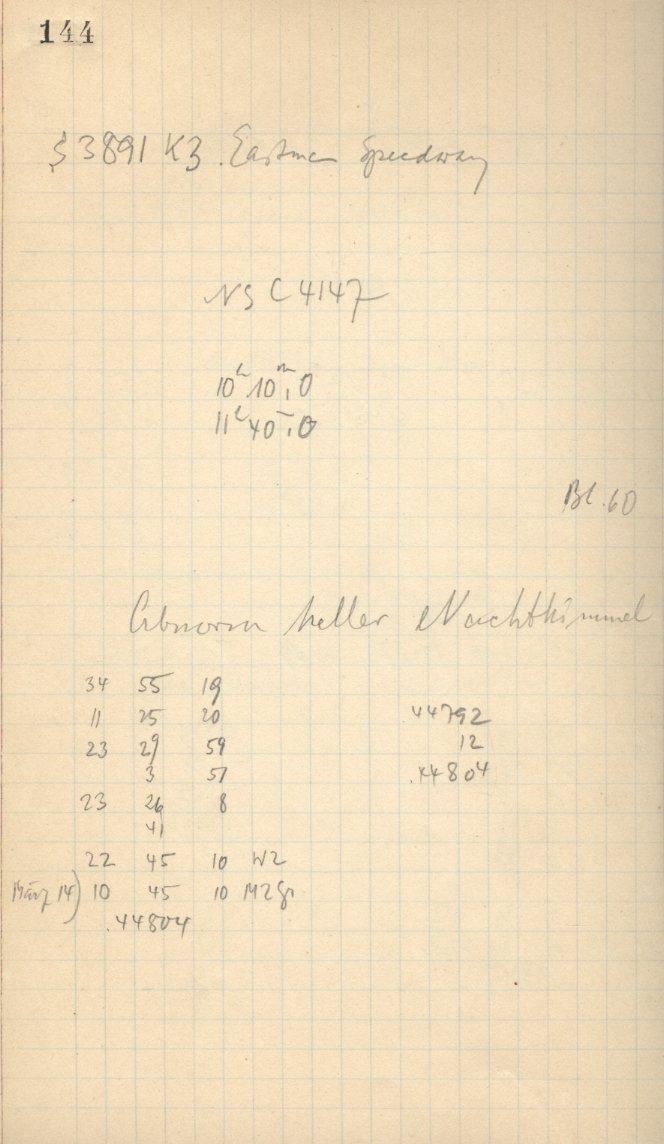 144
S 3891 K3. Eastman Speedway
NGC 4147
10h 10m,0
11h 40m,0
Bl. 60
Abnorm heller Nachthimmel
34 55 19
11 25 20
23 29 59
3 51
23 26 8
41
22 45 10 WZ
März 14) 10 45 10 MZGr
.44804
.44792
12
.44804